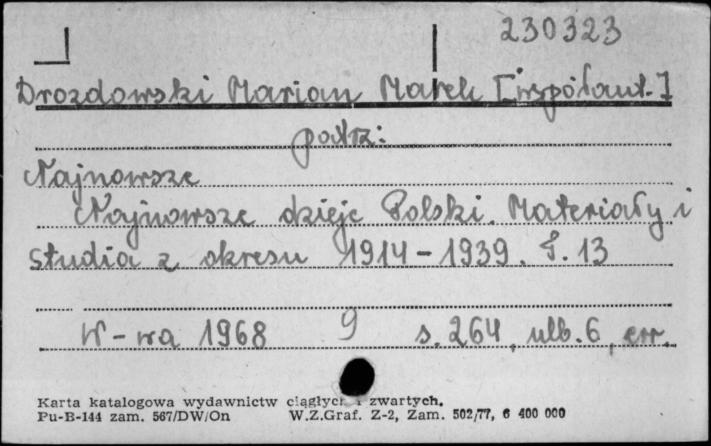 230323
Drozdowski Marian Marek [współaut.]
patrz:
Najnowsze
Najnowsze dzieje Polski. Materiały i
studia z okresu 1914-1939. T. 13
W-wa 1968 9 s. 264, ulb. 6, err.
Karta katalogowa wydawnictw ciągłych i zwartych.
Pu-B-144 zam. 567/DW/On W.Z.Graf. Z-2, Zam. 502/77, 6 400 000